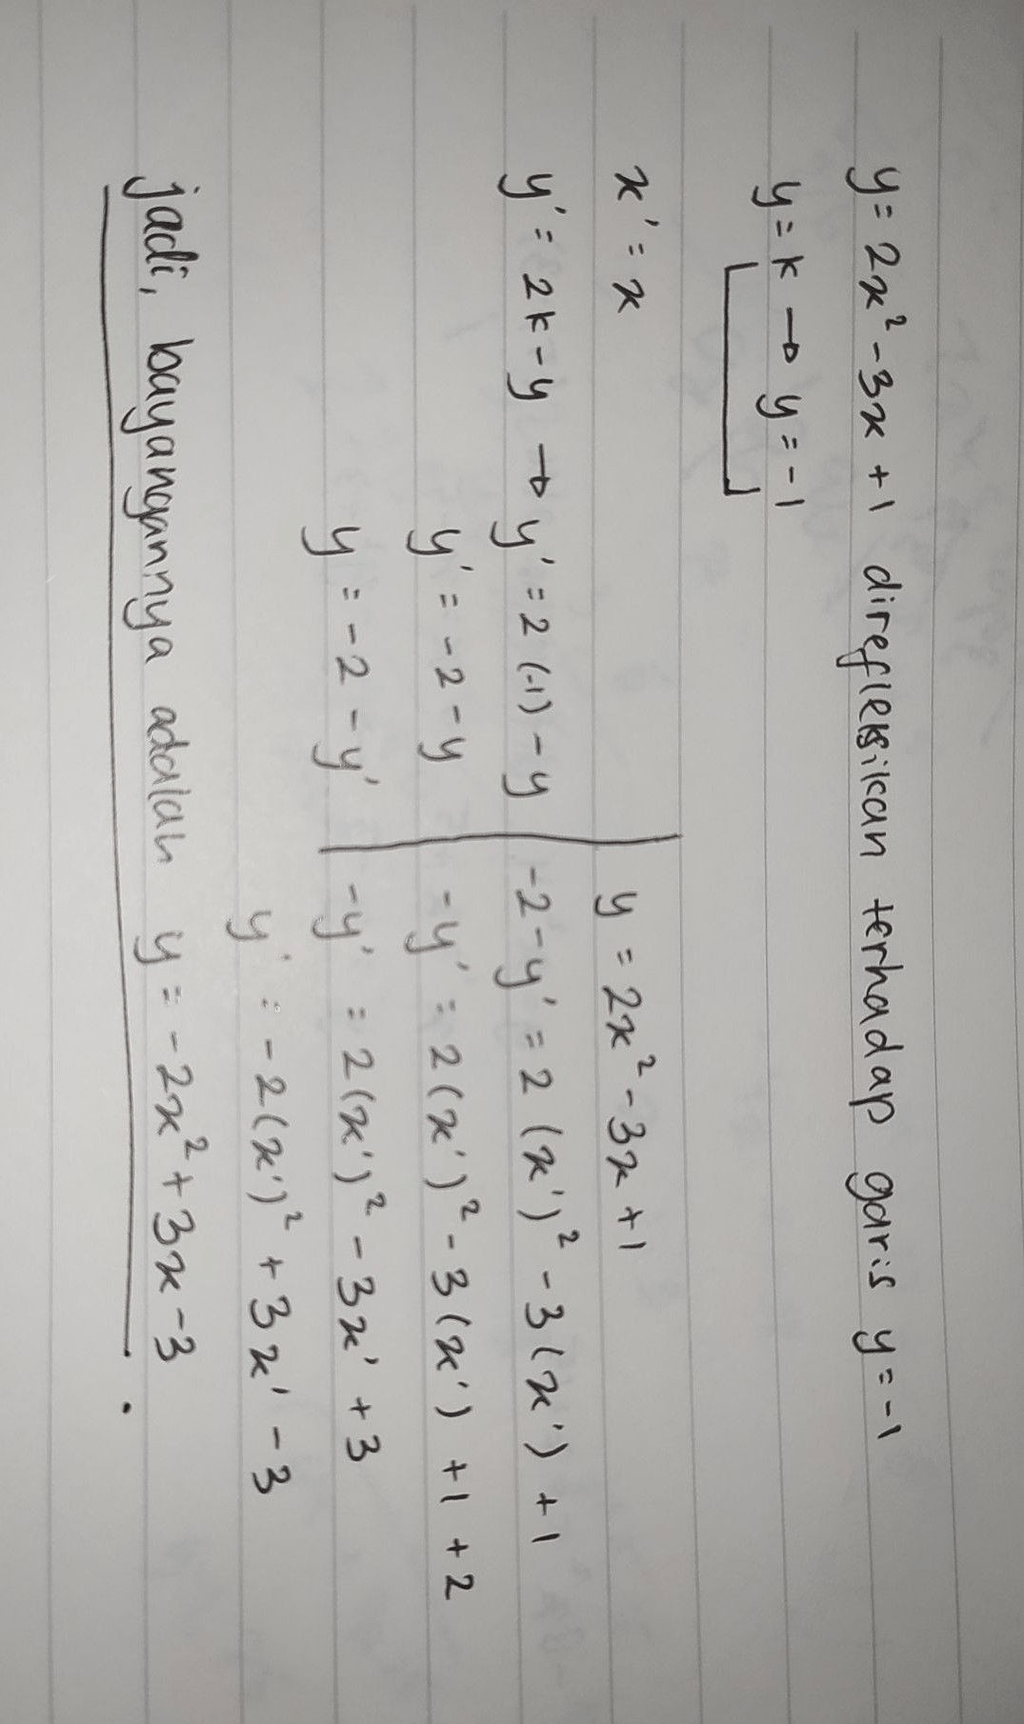 y = 2x² - 3x + 1 direfleksikan terhadap garis y = -1
y = k → y = -1
x' = x
y' = 2k - y → y' = 2 (-1) - y
y' = -2 - y
y = -2 - y'
y = 2x² - 3x + 1
-2 - y' = 2 (x')² - 3 (x') + 1
-y' = 2 (x')² - 3 (x') + 1 + 2
-y' = 2(x')² - 3x' + 3
y' = -2(x')² + 3x' - 3
jadi, bayangannya adalah y = -2x² + 3x - 3.